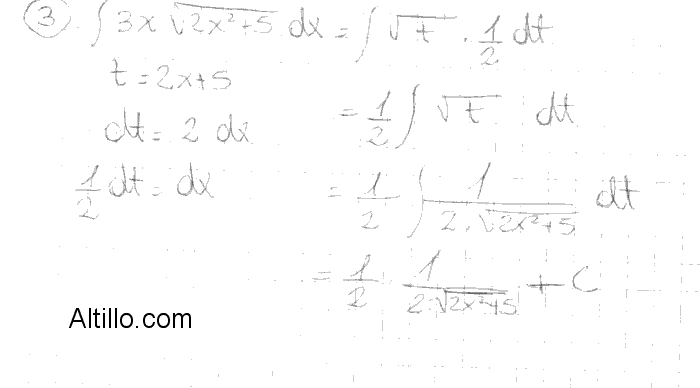 ③ ∫ 3x √(2x²+5) dx = ∫ √t · 1/2 dt
t = 2x+5
= 1/2 ∫ √t dt
dt = 2 dx
1/2 dt = dx
= 1/2 ∫ 1/(2·√(2x²+5)) dt
= 1/2 · 1/(2·√(2x²+5)) + C
Altillo.com